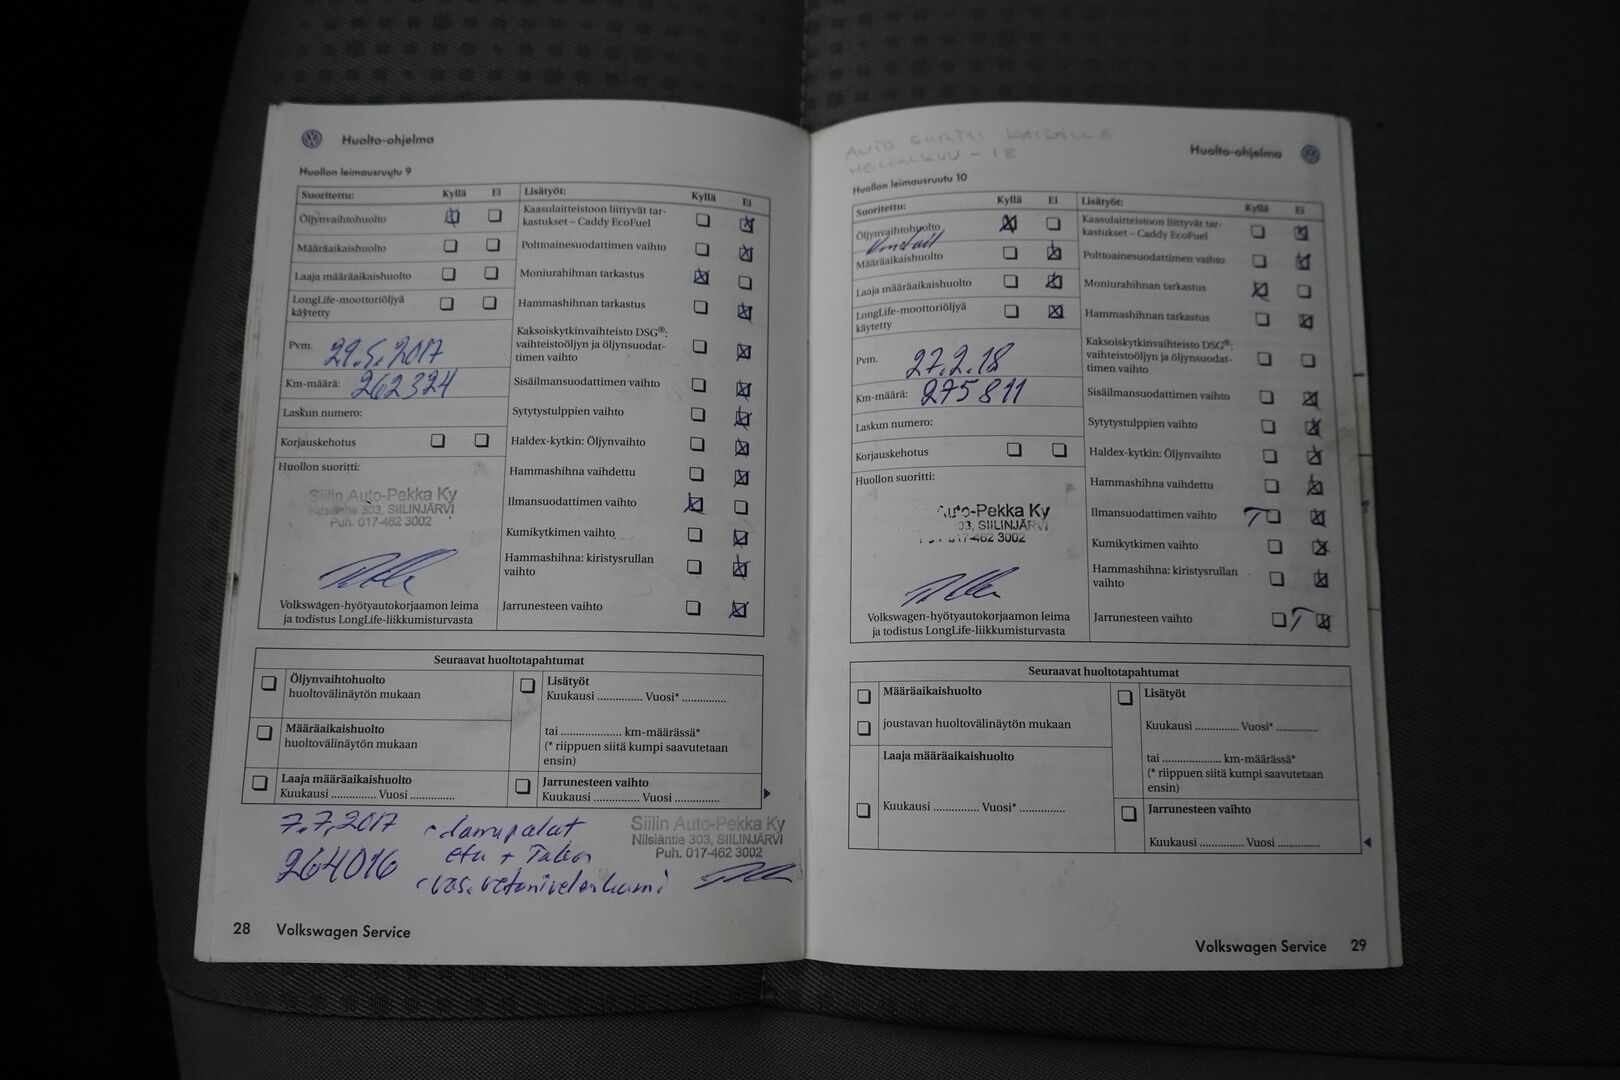 Huolto-ohjelma
Huollon leimausruutu 9
Suoritettu: Kyllä Ei
Öljynvaihtohuolto
Määräaikaishuolto
Laaja määräaikaishuolto
LongLife-moottoriöljyä
käytetty
Pvm. 29.5.2017
Km-määrä: 262324
Laskun numero:
Korjauskehotus
Huollon suoritti:
Siilin Auto-Pekka Ky
Nilsiäntie 303, SIILINJÄRVI
Puh. 017-462 3002
Volkswagen-hyötyautokorjaamon leima
ja todistus LongLife-liikkumisturvasta
Lisätyöt: Kyllä Ei
Kaasulaitteistoon liittyvät tar-
kastukset – Caddy EcoFuel
Polttoainesuodattimen vaihto
Moniurahihnan tarkastus
Hammashihnan tarkastus
Kaksoiskytkinvaihteisto DSG®:
vaihteistoöljyn ja öljynsuodat-
timen vaihto
Sisäilmansuodattimen vaihto
Sytytystulppien vaihto
Haldex-kytkin: Öljynvaihto
Hammashihna vaihdettu
Ilmansuodattimen vaihto
Kumikytkimen vaihto
Hammashihna: kiristysrullan
vaihto
Jarrunesteen vaihto
Seuraavat huoltotapahtumat
Öljynvaihtohuolto
huoltovälinäytön mukaan
Määräaikaishuolto
huoltovälinäytön mukaan
Laaja määräaikaishuolto
Kuukausi ............... Vuosi ...............
Lisätyöt
Kuukausi ............... Vuosi* ...............
tai .................... km-määrässä*
(* riippuen siitä kumpi saavutetaan
ensin)
Jarrunesteen vaihto
Kuukausi ............... Vuosi ...............
7.7.2017
264016
jarrupalat
etu + Taka
Siilin Auto-Pekka Ky
Nilsiäntie 303, SIILINJÄRVI
Puh. 017-462 3002
28 Volkswagen Service
AUTO SIIRTYI KAISALLE
HELMIKUU - 18
Huolto-ohjelma
Huollon leimausruutu 10
Suoritettu: Kyllä Ei
Öljynvaihtohuolto
Määräaikaishuolto
Laaja määräaikaishuolto
LongLife-moottoriöljyä
käytetty
Pvm. 27.2.18
Km-määrä: 275811
Laskun numero:
Korjauskehotus
Huollon suoritti:
Auto-Pekka Ky
03, SIILINJÄRVI
017-462 3002
Volkswagen-hyötyautokorjaamon leima
ja todistus LongLife-liikkumisturvasta
Lisätyöt: Kyllä Ei
Kaasulaitteistoon liittyvät tar-
kastukset – Caddy EcoFuel
Polttoainesuodattimen vaihto
Moniurahihnan tarkastus
Hammashihnan tarkastus
Kaksoiskytkinvaihteisto DSG®:
vaihteistoöljyn ja öljynsuodat-
timen vaihto
Sisäilmansuodattimen vaihto
Sytytystulppien vaihto
Haldex-kytkin: Öljynvaihto
Hammashihna vaihdettu
Ilmansuodattimen vaihto T
Kumikytkimen vaihto
Hammashihna: kiristysrullan
vaihto
Jarrunesteen vaihto T
Seuraavat huoltotapahtumat
Määräaikaishuolto
joustavan huoltovälinäytön mukaan
Laaja määräaikaishuolto
Kuukausi ............... Vuosi* ...............
Lisätyöt
Kuukausi ............... Vuosi* ...............
tai .................... km-määrässä*
(* riippuen siitä kumpi saavutetaan
ensin)
Jarrunesteen vaihto
Kuukausi ............... Vuosi ...............
Volkswagen Service 29